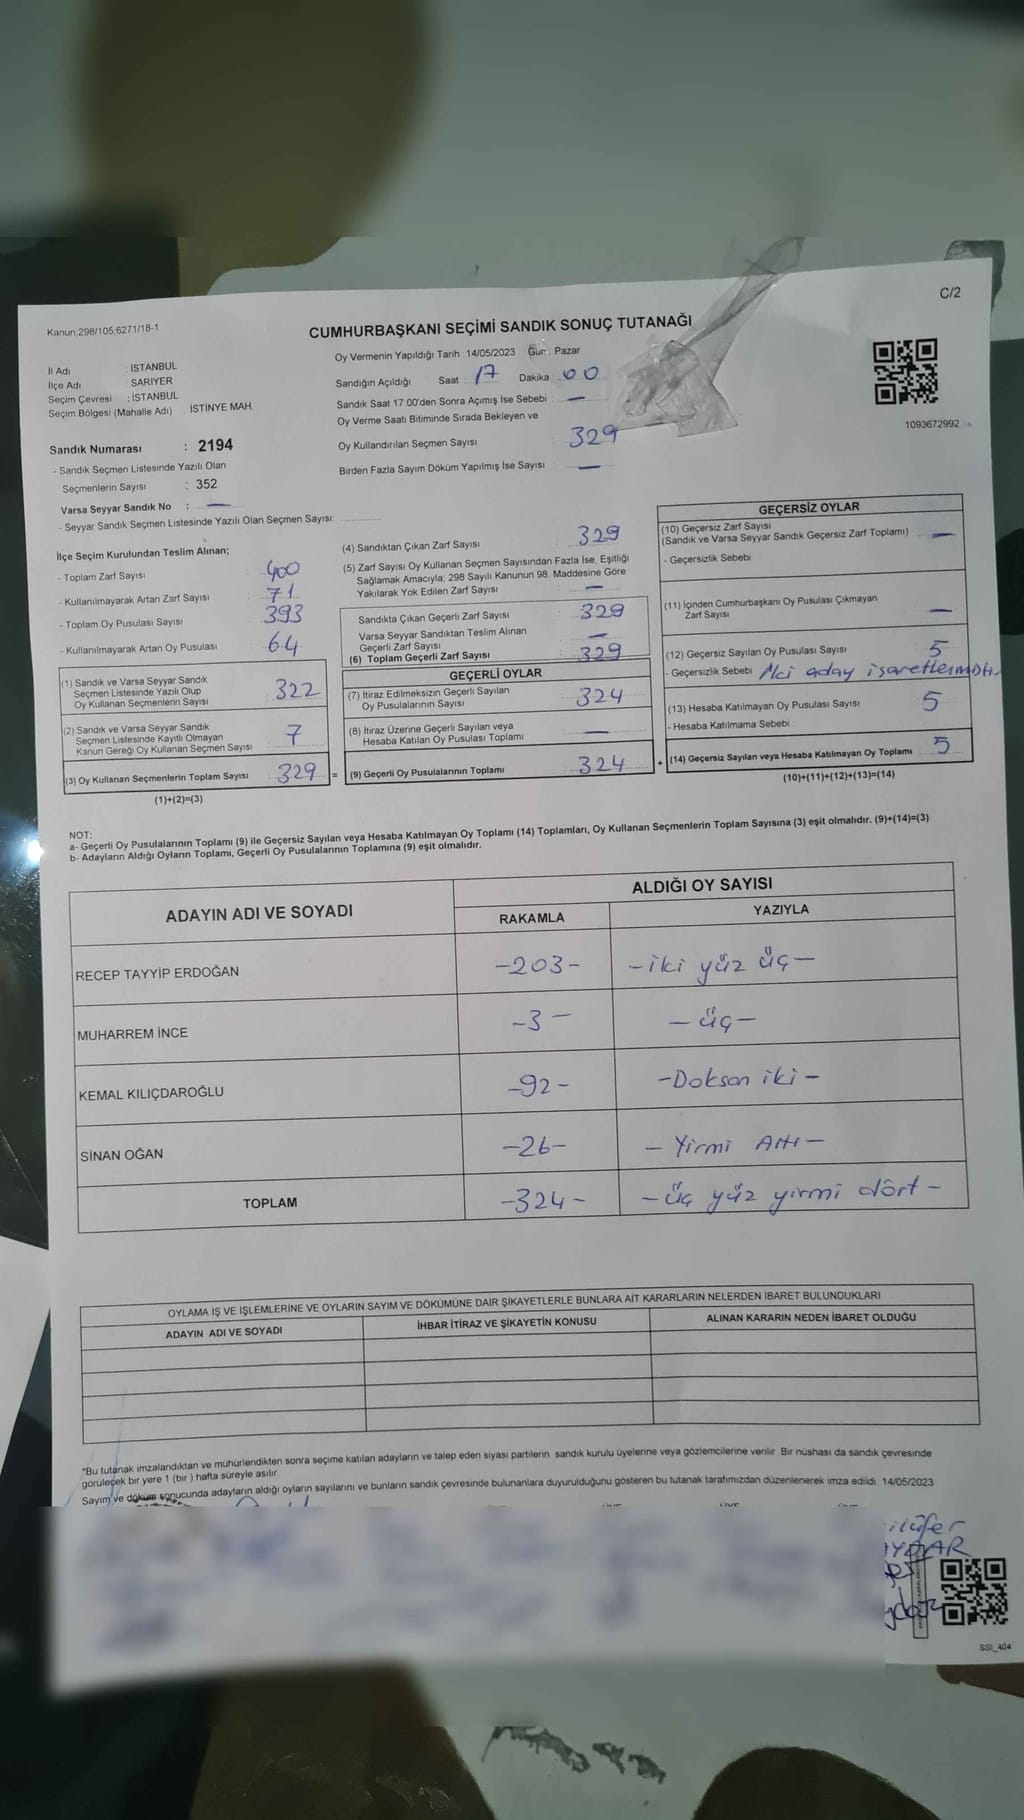 C/2
Kanun,298/105,6271/18-1
CUMHURBAŞKANI SEÇİMİ SANDIK SONUÇ TUTANAĞI
İl Adı : İSTANBUL
İlçe Adı : SARIYER
Seçim Çevresi : İSTANBUL
Seçim Bölgesi (Mahalle Adı) : İSTİNYE MAH.
Oy Vermenin Yapıldığı Tarih : 14/05/2023 Gün : Pazar
Sandığın Açıldığı Saat : 17 Dakika : 00
Sandık Saat 17:00'den Sonra Açımış İse Sebebi : —
Oy Verme Saati Bitiminde Sırada Bekleyen ve
Oy Kullandırılan Seçmen Sayısı : 329
Birden Fazla Sayım Döküm Yapılmış İse Sayısı : —
1093672992
Sandık Numarası : 2194
- Sandık Seçmen Listesinde Yazılı Olan
Seçmenlerin Sayısı : 352
Varsa Seyyar Sandık No : —
- Seyyar Sandık Seçmen Listesinde Yazılı Olan Seçmen Sayısı:
İlçe Seçim Kurulundan Teslim Alınan;
- Toplam Zarf Sayısı : 400
- Kullanılmayarak Artan Zarf Sayısı : 71
- Toplam Oy Pusulası Sayısı : 393
- Kullanılmayarak Artan Oy Pusulası : 64
(1) Sandık ve Varsa Seyyar Sandık
Seçmen Listesinde Yazılı Olup
Oy Kullanan Seçmenlerin Sayısı : 322
(2) Sandık ve Varsa Seyyar Sandık
Seçmen Listesinde Kayıtlı Olmayan
Kanun Gereği Oy Kullanan Seçmen Sayısı : 7
(3) Oy Kullanan Seçmenlerin Toplam Sayısı : 329 =
(1)+(2)=(3)
(4) Sandıktan Çıkan Zarf Sayısı : 329
(5) Zarf Sayısı Oy Kullanan Seçmen Sayısından Fazla İse, Eşitliği
Sağlamak Amacıyla; 298 Sayılı Kanunun 98. Maddesine Göre
Yakılarak Yok Edilen Zarf Sayısı : —
Sandıkta Çıkan Geçerli Zarf Sayısı : 329
Varsa Seyyar Sandıktan Teslim Alınan
Geçerli Zarf Sayısı : —
(6) Toplam Geçerli Zarf Sayısı : 329
GEÇERLİ OYLAR
(7) İtiraz Edilmeksizin Geçerli Sayılan
Oy Pusulalarının Sayısı : 324
(8) İtiraz Üzerine Geçerli Sayılan veya
Hesaba Katılan Oy Pusulası Toplamı : —
(9) Geçerli Oy Pusulalarının Toplamı : 324 +
GEÇERSİZ OYLAR
(10) Geçersiz Zarf Sayısı
(Sandık ve Varsa Seyyar Sandık Geçersiz Zarf Toplamı) : —
- Geçersizlik Sebebi
(11) İçinden Cumhurbaşkanı Oy Pusulası Çıkmayan
Zarf Sayısı : —
(12) Geçersiz Sayılan Oy Pusulası Sayısı : 5
- Geçersizlik Sebebi : aday işaretlemişti.
(13) Hesaba Katılmayan Oy Pusulası Sayısı : 5
- Hesaba Katılmama Sebebi :
(14) Geçersiz Sayılan veya Hesaba Katılmayan Oy Toplamı : 5
(10)+(11)+(12)+(13)=(14)
NOT:
a- Geçerli Oy Pusulalarının Toplamı (9) ile Geçersiz Sayılan veya Hesaba Katılmayan Oy Toplamı (14) Toplamları, Oy Kullanan Seçmenlerin Toplam Sayısına (3) eşit olmalıdır. (9)+(14)=(3)
b- Adayların Aldığı Oyların Toplamı, Geçerli Oy Pusulalarının Toplamına (9) eşit olmalıdır.
ADAYIN ADI VE SOYADI ALDIĞI OY SAYISI
RAKAMLA YAZIYLA
RECEP TAYYİP ERDOĞAN -203- -iki yüz üç-
MUHARREM İNCE -3- -üç-
KEMAL KILIÇDAROĞLU -92- -Doksan iki-
SİNAN OĞAN -26- - Yirmi Altı -
TOPLAM -324- - üç yüz yirmi dört -
OYLAMA İŞ VE İŞLEMLERİNE VE OYLARIN SAYIM VE DÖKÜMÜNE DAİR ŞİKAYETLERLE BUNLARA AİT KARARLARIN NELERDEN İBARET BULUNDUKLARI
ADAYIN ADI VE SOYADI İHBAR İTİRAZ VE ŞİKAYETİN KONUSU ALINAN KARARIN NEDEN İBARET OLDUĞU
*Bu tutanak imzalandıktan ve mühürlendikten sonra seçime katılan adayların ve talep eden siyasi partilerin sandık kurulu üyelerine veya gözlemcilerine verilir. Bir nüshası da sandık çevresinde
görülecek bir yere 1 (bir) hafta süreyle asılır.
Sayım ve döküm sonucunda adayların aldığı oyların sayılarını ve bunların sandık çevresinde bulunanlara duyurulduğunu gösteren bu tutanak tarafımızdan düzenlenerek imza edildi. 14/05/2023
SSI_404